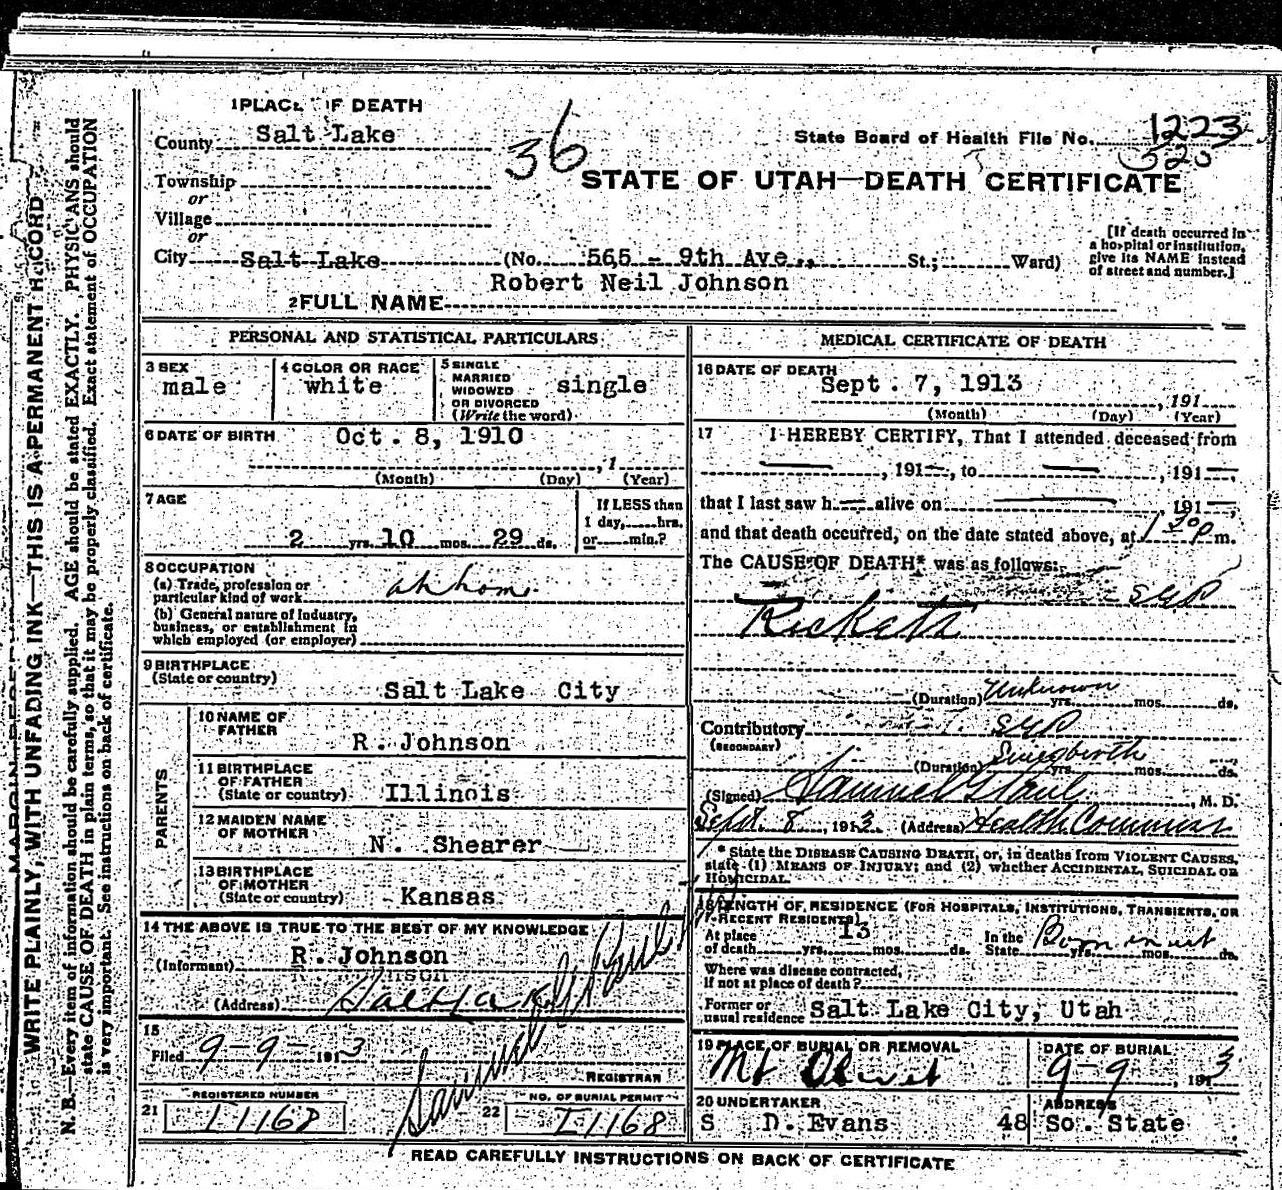 1 PLACE OF DEATH
County Salt Lake
36
State Board of Health File No. 1223
520
Township
or
STATE OF UTAH—DEATH CERTIFICATE
Village
or
City Salt Lake (No. 565 - 9th Ave., St.; Ward)
[If death occurred in
a hospital or institution,
give its NAME instead
of street and number.]
Robert Neil Johnson
2 FULL NAME
PERSONAL AND STATISTICAL PARTICULARS
3 SEX
male
4 COLOR OR RACE
white
5 SINGLE
MARRIED
WIDOWED
OR DIVORCED
(Write the word)
single
6 DATE OF BIRTH Oct. 8, 1910
, 1
(Month) (Day) (Year)
7 AGE
2 yrs. 10 mos. 29 ds.
If LESS than
1 day, hrs.
or min.?
8 OCCUPATION
(a) Trade, profession or
particular kind of work at home
(b) General nature of Industry,
business, or establishment in
which employed (or employer)
9 BIRTHPLACE
(State or country)
Salt Lake City
PARENTS
10 NAME OF
FATHER
R. Johnson
11 BIRTHPLACE
OF FATHER
(State or country) Illinois
12 MAIDEN NAME
OF MOTHER
N. Shearer
13 BIRTHPLACE
OF MOTHER
(State or country) Kansas
14 THE ABOVE IS TRUE TO THE BEST OF MY KNOWLEDGE
(Informant) R. Johnson
(Address) Salt Lake
15
Filed 9-9- 1913
REGISTRAR
REGISTERED NUMBER
21 I1168
NO. OF BURIAL PERMIT
22 I1168
MEDICAL CERTIFICATE OF DEATH
16 DATE OF DEATH
Sept. 7, 1913
, 191
(Month) (Day) (Year)
17 I HEREBY CERTIFY, That I attended deceased from
— , 191—, to — , 191—
that I last saw h— alive on — , 191—,
and that death occurred, on the date stated above, at 1 30 p m.
The CAUSE OF DEATH* was as follows:
Ricketts
(Duration) Unknown yrs. mos. ds.
Contributory
(SECONDARY)
(Duration) Since birth yrs. mos. ds.
(Signed) Samuel G Paul, M. D.
Sept. 8, 1913 (Address) Health Commiss
* State the DISEASE CAUSING DEATH, or, in deaths from VIOLENT CAUSES,
state (1) MEANS OF INJURY; and (2) whether ACCIDENTAL, SUICIDAL OR
HOMICIDAL.
18 LENGTH OF RESIDENCE (FOR HOSPITALS, INSTITUTIONS, TRANSIENTS, OR
RECENT RESIDENTS)
At place
of death yrs. 13 mos. ds. In the
State Born in ut yrs. mos. ds.
Where was disease contracted,
If not at place of death?
Former or
usual residence Salt Lake City, Utah
19 PLACE OF BURIAL OR REMOVAL
Mt Olivet
DATE OF BURIAL
9-9, 1913
20 UNDERTAKER
S D. Evans
ADDRESS
48 So. State
READ CAREFULLY INSTRUCTIONS ON BACK OF CERTIFICATE
WRITE PLAINLY, WITH UNFADING INK—THIS IS A PERMANENT RECORD
N. B.—Every item of information should be carefully supplied. AGE should be stated EXACTLY. PHYSICIANS should
state CAUSE OF DEATH in plain terms, so that it may be properly classified. Exact statement of OCCUPATION
is very important. See instructions on back of certificate.